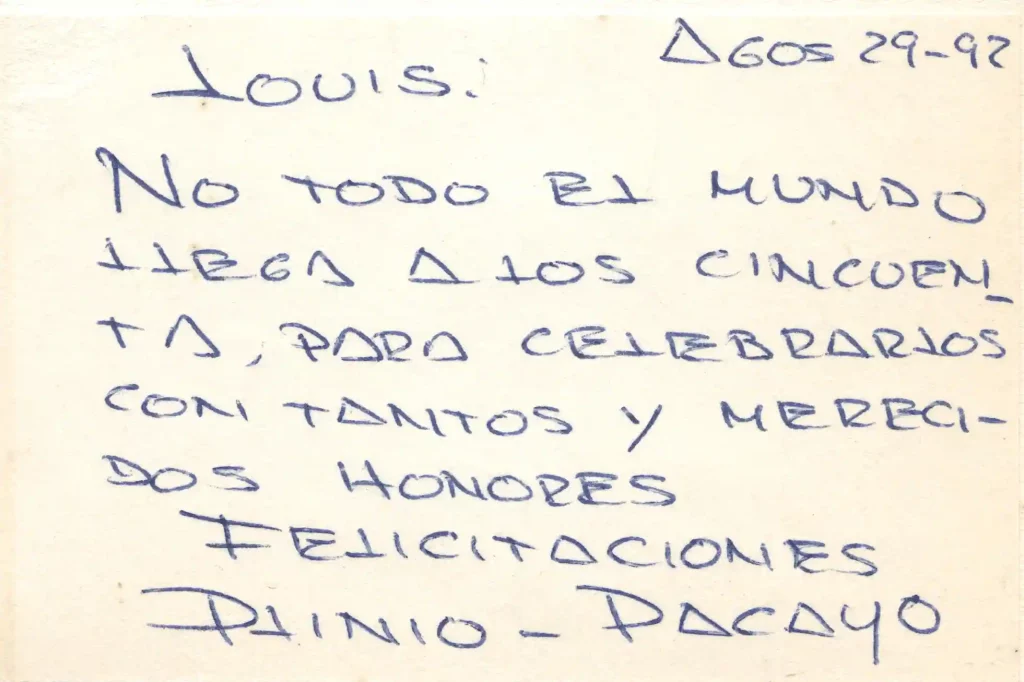 AGOS 29-92
LOUIS:
NO TODO EL MUNDO
LLEGA A LOS CINCUEN_
TA, PARA CELEBRARLOS
CON TANTOS Y MERECI-
DOS HONORES
FELICITACIONES
PLINIO - PACAYO